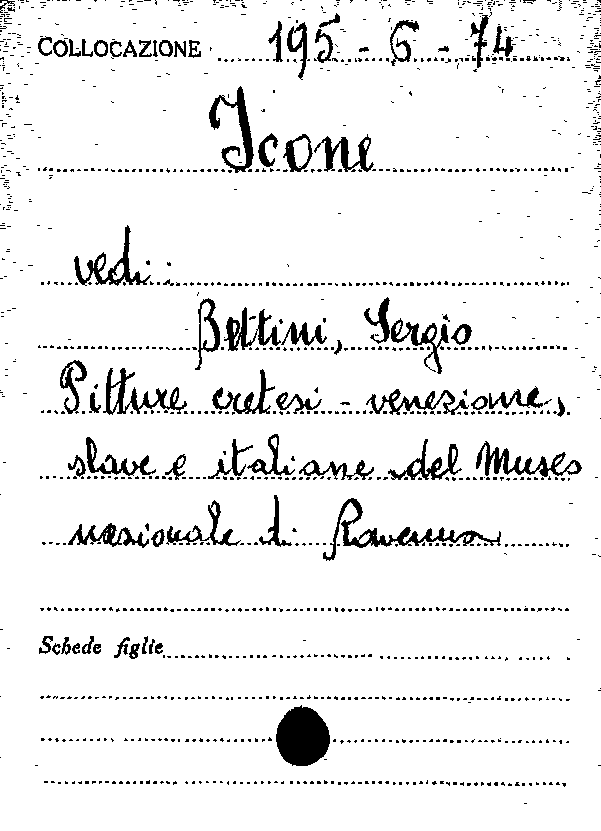 COLLOCAZIONE 195 - 6 - 74
Icone
vedi:
Bettini, Sergio
Pitture cretesi - veneziane,
slave e italiane del Museo
nazionale di Ravenna
Schede figlie